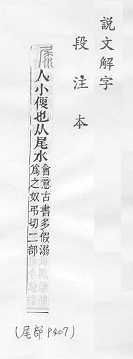 說文解字
段注本
人小便也从尾水
會意古書多假溺
爲之奴弔切二部
(尾部 P407)